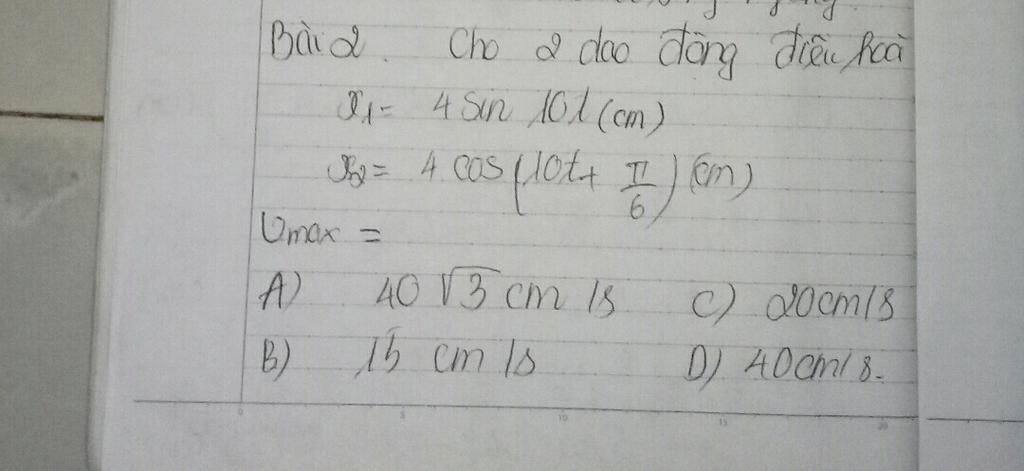 Bài 2. Cho 2 dao động điều hoà
x₁ = 4 sin 10t (cm)
x₂ = 4 cos (10t + π/6) (cm)
Vmax =
A) 40 √3 cm/s C) 20cm/s
B) 15 cm/s D) 40cm/s.
0 5 10 15 20